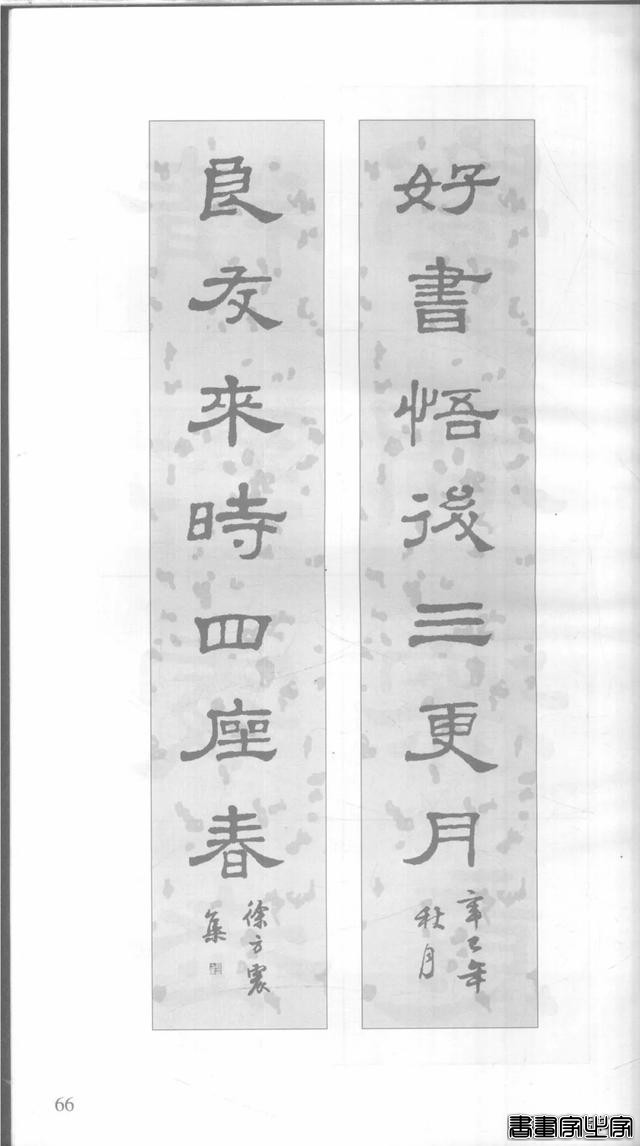 好書悟後三更月
辛巳年
秋月
良友來時四座春
徐方震
集
66
書畫字典字